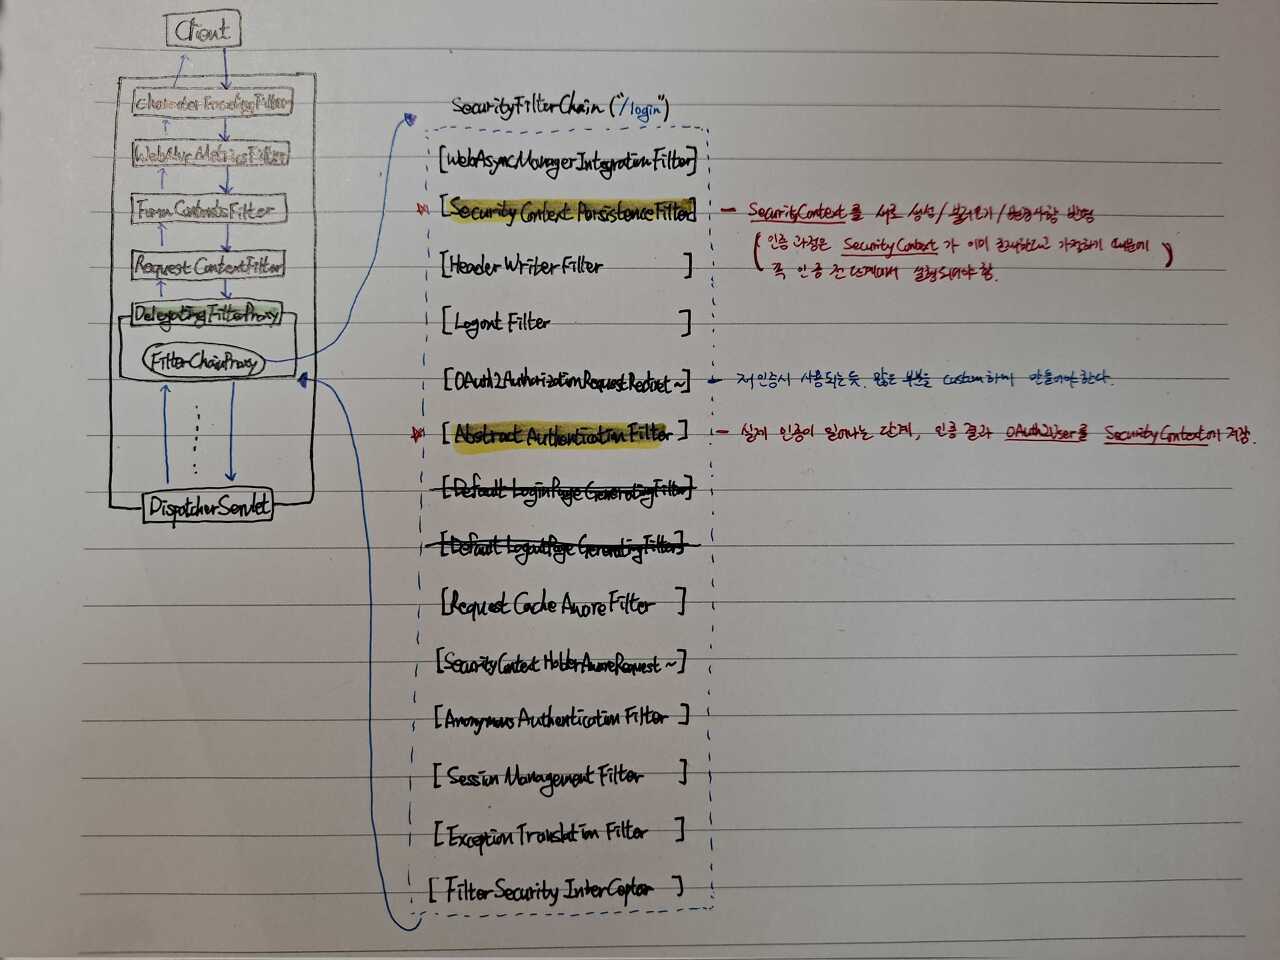 Client
CharacterEncodingFilter
WebAsyncMetricsFilter
FormContentsFilter
RequestContextFilter
DelegatingFilterProxy
FilterChainProxy
DispatcherServlet
SecurityFilterChain ("/login")
[WebAsyncManagerIntegrationFilter]
[Security Context Persistence Filter] - SecurityContext를 새로 생성/불러오기/변경사항 반영
(인증 과정은 SecurityContext가 이미 존재한다고 가정하기 때문에
즉 인증 전 단계에서 실행되어야 함.)
[Header Writer Filter]
[Logout Filter]
[OAuth2AuthorizationRequestRedirect ~] - 재인증시 사용되는듯. 많은 부분을 custom하여 만들어야한다.
[Abstract Authentication Filter] - 실제 인증이 일어나는 단계, 인증 결과 OAuth2User를 SecurityContext에 저장.
[Default LoginPage GeneratingFilter]
[Default LogoutPage GeneratingFilter]
[Request Cache Aware Filter]
[SecurityContext HolderAwareRequest ~]
[Anonymous Authentication Filter]
[Session Management Filter]
[Exception Translation Filter]
[Filter Security InterCeptor]